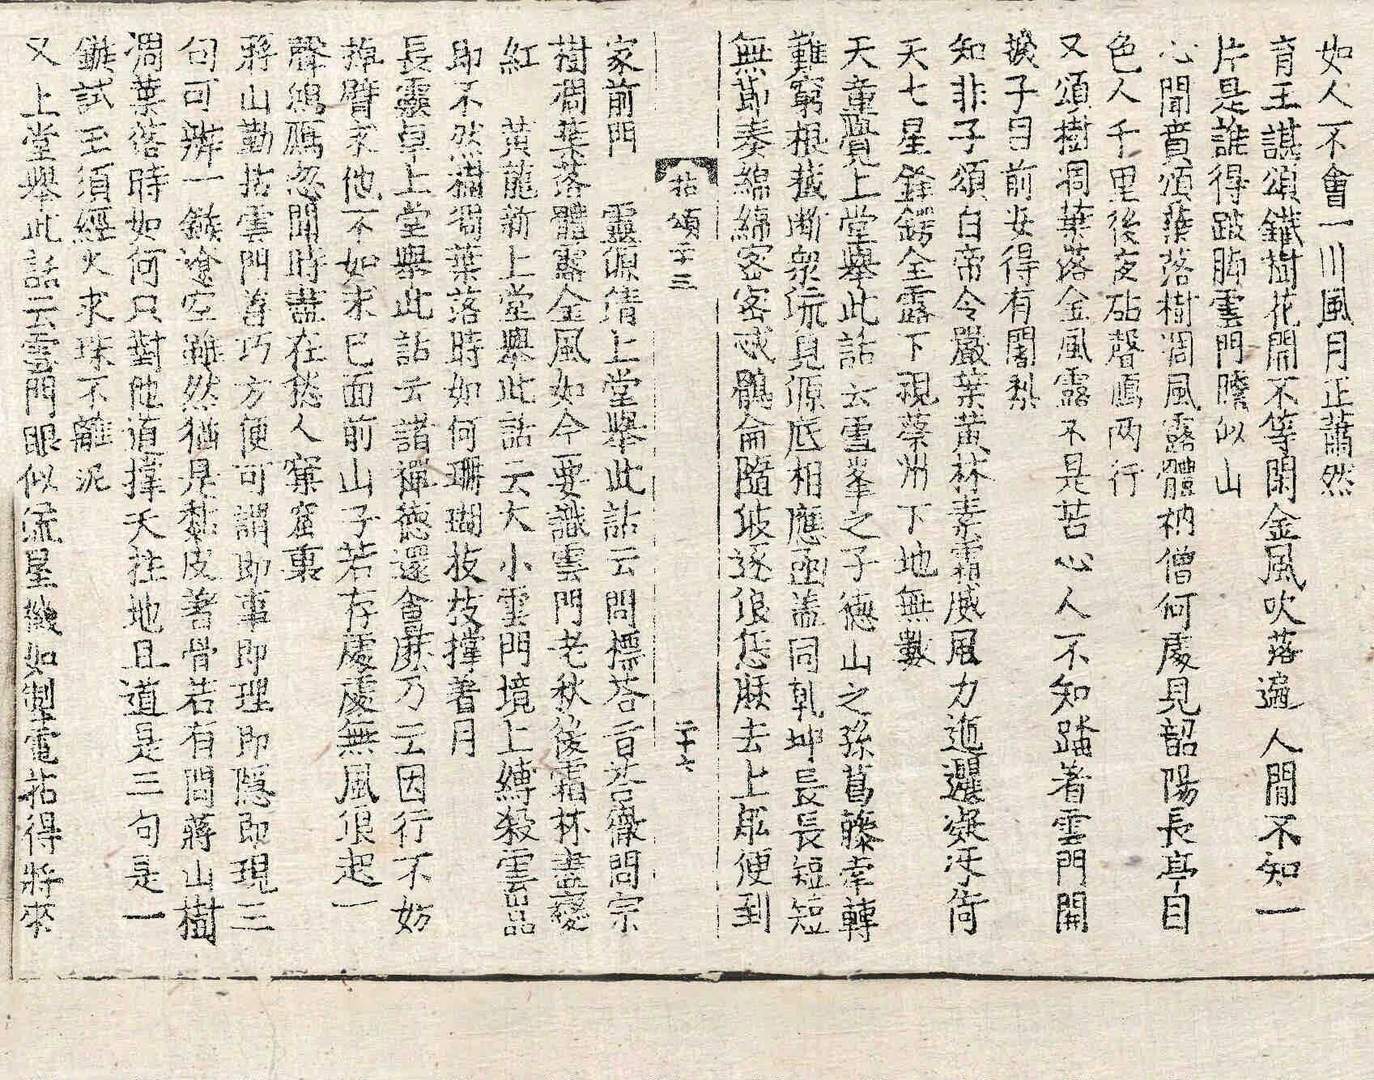 如人不會一川風月正蕭然
育王諶頌鐵樹花開不等閑金風吹落遍人間不知一
片是誰得跛脚雲門膽似山
心聞賁頌葉落樹凋風露體衲僧何處見韶陽長亭目
色人千里後夜砧聲鴈兩行
又頌樹凋葉落金風露不是苦心人不知踏著雲門開
捩子目前安得有闍梨
知非子頌白帝令嚴葉黃林素霜威風力迤邐凝冱倚
天七星鋒鍔全露下視蔡州下地無數
天童覺上堂擧此話云雪峯之子德山之孫葛藤幸轉
難窮根蔕断衆流見源底相應凾盖同乹坤長長短短
無節奏綿綿密密忒鶻侖隨波逐浪恁麽去上舡便到
拈頌十三
二十六
家前門 靈源清上堂擧此話云問標荅旨荅齊問宗
樹凋葉落體露金風如今要識雲門老秋後霜林盡變
紅 黃龍新上堂擧此話云大小雲門境上縛殺雲嵓
即不然樹凋葉落時如何珊瑚枝枝撑著月
長靈卓上堂擧此話云諸禪德還會麽乃云因行不妨
掉臂求他不如求已面前山子若存處處無風浪起一
聲鴻鴈忽聞時盡在愁人窠窟裏
蔣山勤拈雲門善巧方便可謂即事即理即隱即現三
句可辨一鏃遼空雖然猶是黏皮著骨若有問蔣山樹
凋葉落時如何只對他道撑天拄地且道是三句是一
鏃試玉須經火求珠不離泥
又上堂擧此話云雲門眼似流星機如掣電拈得將來